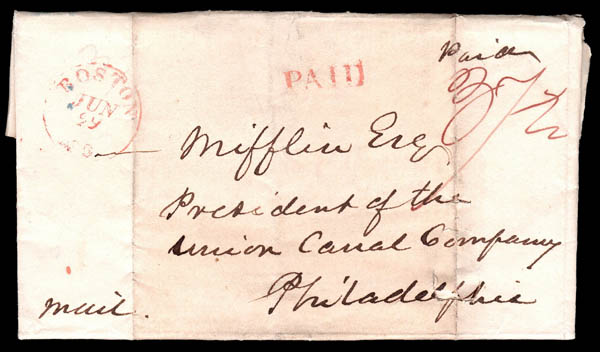 Paid
BOSTON
JUN
29
MS
PAID
37 1/2
— Mifflin Esq
President of the
Union Canal Company
Philadelphia
mail.